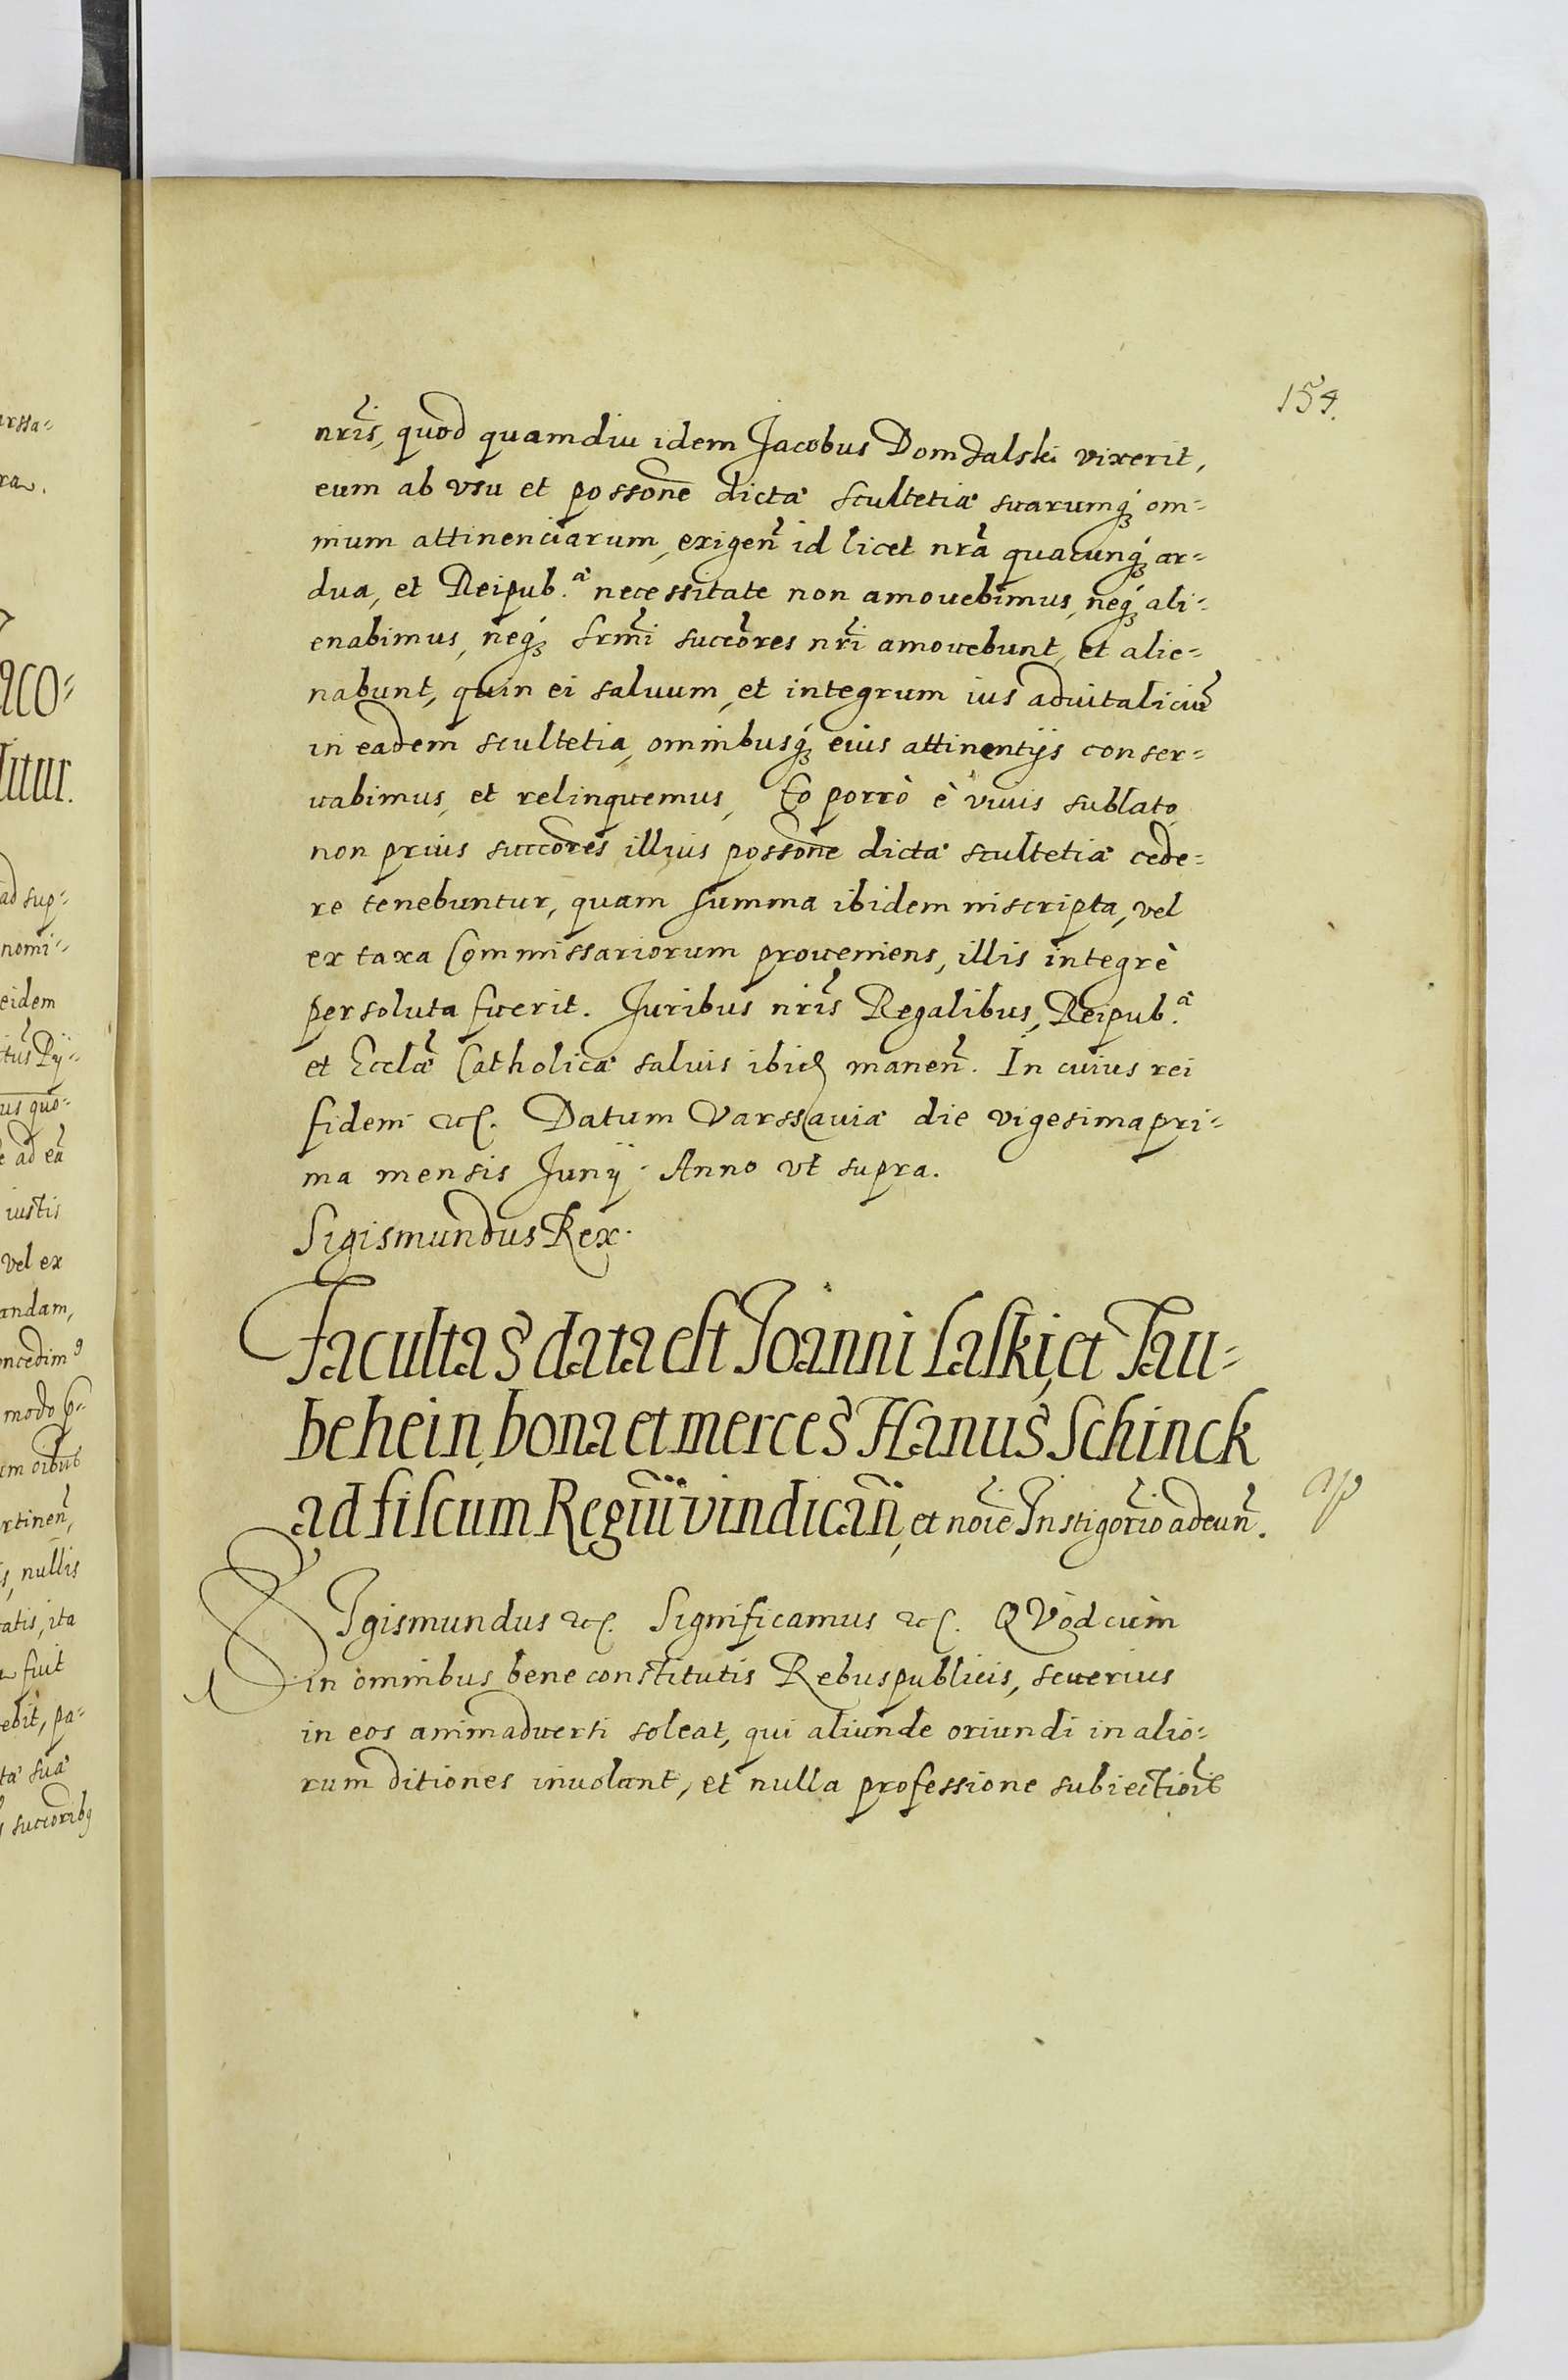 154.
nris, quod quamdiu idem Jacobus Domdalski vixerit,
eum ab vsu et possone dictæ scultetiæ suarumq; om-
nium attinenciarum, exigen id licet nra quacunq; ar-
dua, et Reipub.æ necessitate non amouebimus, neq; ali-
enabimus, neq; Srmi succores nri amouebunt, et alie-
nabunt, quin ei saluum, et integrum ius aduitaliciu
in eadem scultetia, omnibusq; eius attinentijs conser-
uabimus, et relinquemus, Eo porrò è viuis sublato
non prius succores illius possone dictæ scultetiæ cede-
re tenebuntur, quam summa ibidem inscripta, vel
ex taxa Commissariorum proueniens, illis integrè
persoluta fuerit. Juribus nris Regalibus, Reipub.æ
et Ecclæ Catholicæ saluis ibid manen. In cuius rei
fidem etc. Datum Varssauiæ die vigesima pri-
ma mensis Junij Anno vt supra.
Sigismundus Rex.
Facultas data est Joanni Laski, et Tau-
behein, bona et merces Hanus Schinck
ad fiscum Regiū vindicān, et noīe Instigorio adeun.
SIgismundus etc. Significamus etc. QVod cùm
in omnibus bene constitutis Rebuspublicis, seuerius
in eos animaduerti soleat, qui aliunde oriundi in alio-
rum ditiones inuolant, et nulla professione subiectiois
arssa-
ra.
aco-
ditur.
ad sup-
nomi-
eidem
us quo-
e ad eā
iustis
vel ex
andam,
modo
rtinen,
s, nullis
tatis, ita
fuit
ebit, pa-
suæ
succorib9